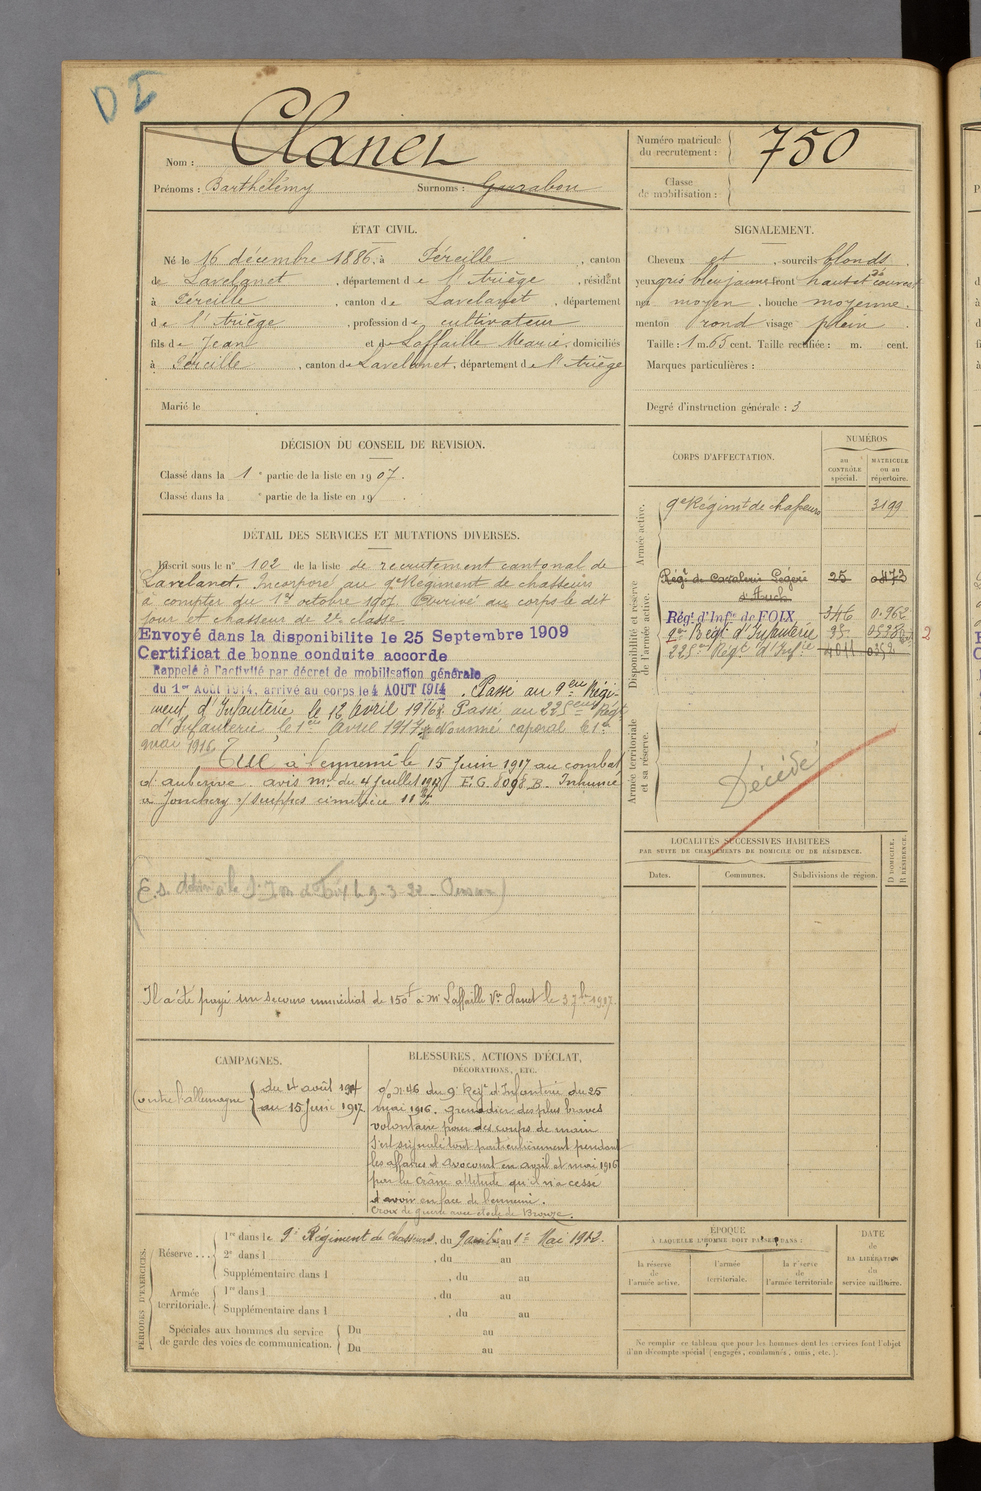 D I
Nom : Clanet
Prénoms : Barthélémy Surnoms : Garrabou
Numéro matricule du recrutement : 750
Classe de mobilisation :
ÉTAT CIVIL.
Né le 16 décembre 1886, à Péreille, canton
de Lavelanet, département de l'Ariège, résidant
à Péreille, canton de Lavelanet, département
de l'Ariège, profession de cultivateur
fils de Jean et de Laffaille Marie, domiciliés
à Péreille, canton de Lavelanet, département de l'Ariège
Marié le
SIGNALEMENT.
Cheveux et , sourcils blonds
yeux gris bleu jaune front haut et couvert
nez moyen, bouche moyenne.
menton rond visage plein.
Taille : 1 m. 65 cent. Taille rectifiée : m. cent.
Marques particulières :
Degré d'instruction générale : 3
DÉCISION DU CONSEIL DE REVISION.
Classé dans la 1e partie de la liste en 1907.
Classé dans la e partie de la liste en 19 .
DÉTAIL DES SERVICES ET MUTATIONS DIVERSES.
Inscrit sous le n° 102 de la liste de recrutement cantonal de
Lavelanet. Incorporé au 9e Régiment de chasseurs
à compter du 1er octobre 1907. Arrivé au corps le dit
jour et chasseur de 2e classe.
Envoyé dans la disponibilite le 25 Septembre 1909
Certificat de bonne conduite accorde
Rappelé à l'activité par décret de mobilisation générale
du 1er Août 1914, arrivé au corps le 4 AOUT 1914. Passé au 9ème Régi-
ment d'Infanterie le 12 avril 1916. Passé au 225ème Régt
d'Infanterie le 1er Avril 1917. Nommé caporal le 1er
mai 1916.
Tué à l'ennemi le 15 juin 1917 au combat
d'auberive. avis mel du 4 juillet 1917 E.G. 8098 B. Inhumé
à Jonchery s/ suippes cimetière
Il a été payé un secours immédiat de 150f à Me Laffaille Ve Clanet le 1917.
CORPS D'AFFECTATION.
NUMÉROS
au CONTRÔLE spécial.
MATRICULE ou au répertoire.
Armée active.
9e Régimt de chasseurs 3199
Disponibilité et réserve de l'armée active.
Régt de Cavalerie Légère d'Auch 25 0473
Régt d'Infie de FOIX 346 0.962
9me Régt d'Infanterie
225me Régt d'Infie 4011
Armée territoriale et sa réserve.
Décédé
LOCALITÉS SUCCESSIVES HABITÉES
PAR SUITE DE CHANGEMENTS DE DOMICILE OU DE RÉSIDENCE.
Dates. Communes. Subdivisions de région. D DOMICILE. R RÉSIDENCE.
CAMPAGNES.
Contre l'allemagne { du 4 août 1914
au 15 Juin 1917
BLESSURES, ACTIONS D'ÉCLAT,
DÉCORATIONS, ETC.
O/ n° 46 du 9e Regt d'Infanterie du 25
mai 1916. grenadier des plus braves
volontaire pour des coups de main
s'est signalé tout particulièrement pendant
les affaires d'avocourt en avril et mai 1916
par la crâne attitude qu'il n'a cessé
d'avoir en face de l'ennemi.
Croix de guerre avec étoile de Bronze.
PÉRIODES D'EXERCICES.
Réserve ... 1re dans le 9e Régiment de Chasseurs, du 9 avril au 1er Mai 1912.
2e dans l , du au
Supplémentaire dans l , du au
Armée territoriale. 1re dans l , du au
Supplémentaire dans l , du au
Spéciales aux hommes du service de garde des voies de communication. Du au
Du au
ÉPOQUE
À LAQUELLE L'HOMME DOIT PASSER DANS :
la réserve de l'armée active.
l'armée territoriale.
la réserve de l'armée territoriale
DATE de LA LIBÉRATION du service militaire.
Ne remplir ce tableau que pour les hommes dont les services font l'objet
d'un décompte spécial (engagés, condamnés, omis, etc.).